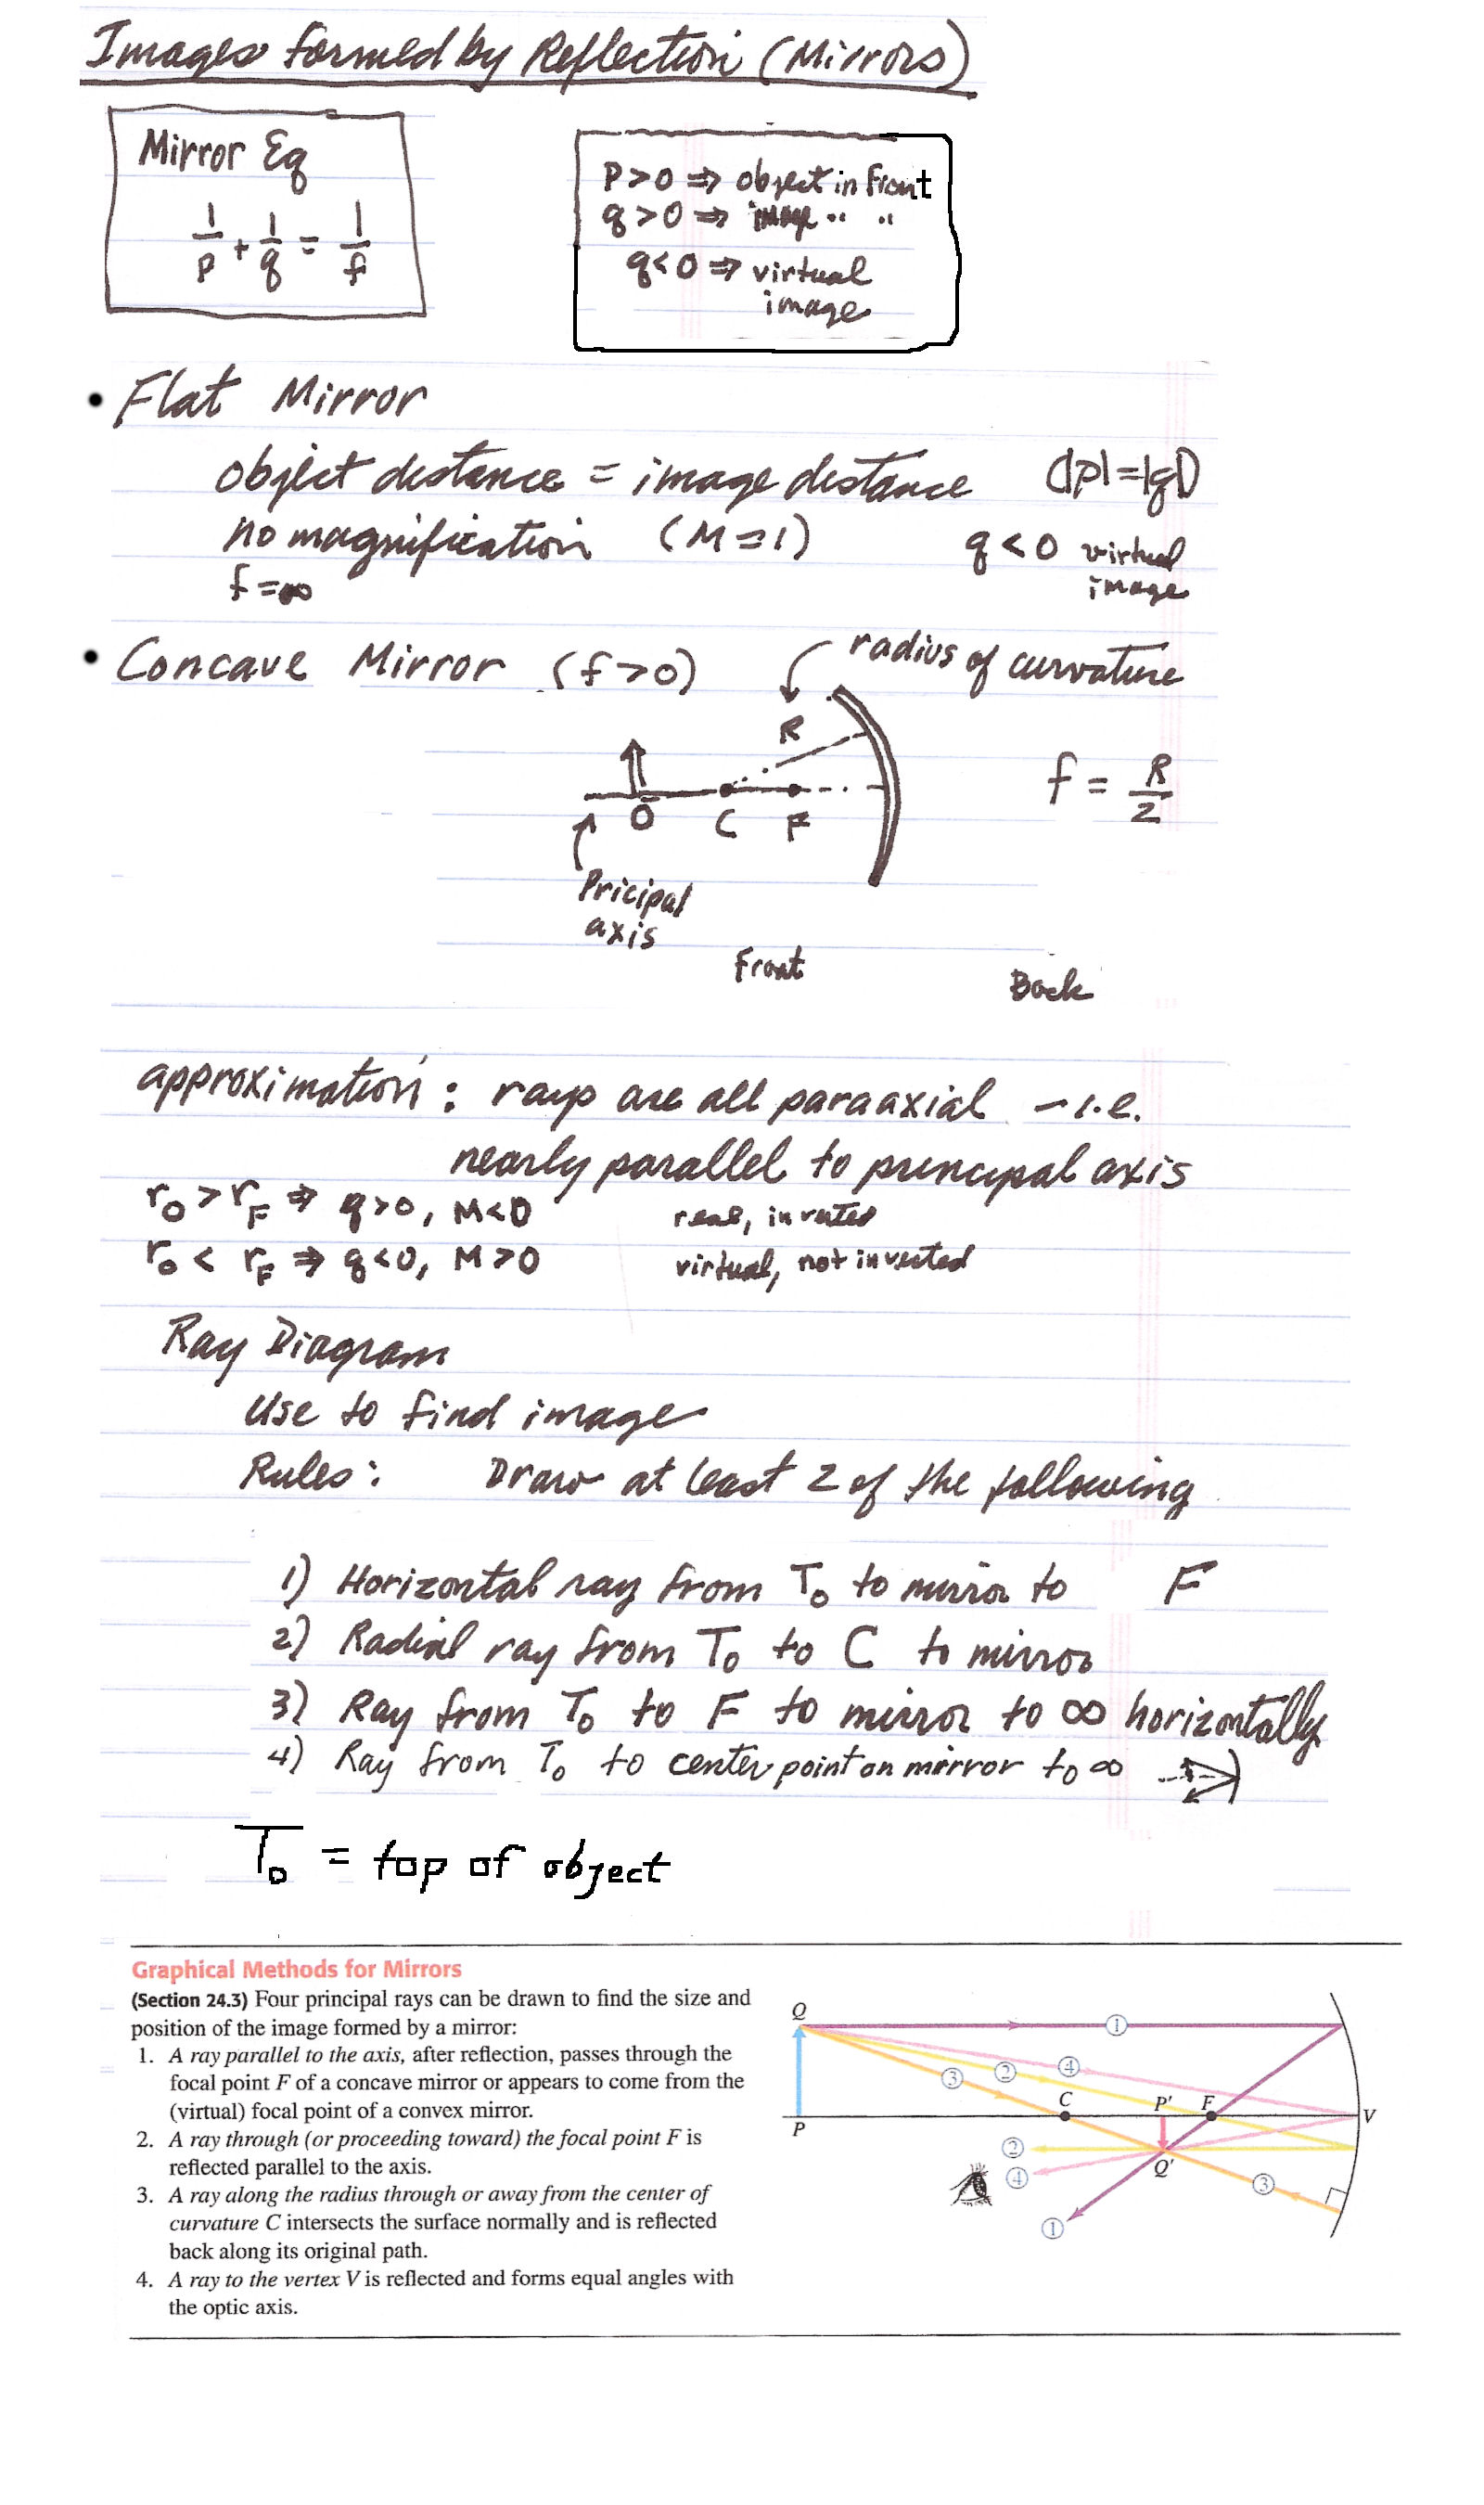 Images formed by Reflection (Mirrors)
Mirror Eq
1/p + 1/q = 1/f
p>0 ⇒ object in front
q>0 ⇒ image " "
q<0 ⇒ virtual
image
• Flat Mirror
object distance = image distance (|p|=|q|)
no magnification (M=1) q<0 virtual
image
f=∞
• Concave Mirror (f>0)
radius of curvature
R
f = R/2
O C F
Pricipal
axis
front
Back
approximation: rays are all paraaxial - i.e.
nearly parallel to principal axis
r_O > r_F ⇒ q>0, M<0 real, inverted
r_o < r_F ⇒ q<0, M>0 virtual, not inverted
Ray Diagram
Use to find image
Rules: Draw at least 2 of the following
1) Horizontal ray from T_o to mirror to F
2) Radial ray from T_o to C to mirror
3) Ray from T_o to F to mirror to ∞ horizontally
4) Ray from T_o to center point on mirror to ∞
T_o = top of object
Graphical Methods for Mirrors
(Section 24.3) Four principal rays can be drawn to find the size and
position of the image formed by a mirror:
1. A ray parallel to the axis, after reflection, passes through the
focal point F of a concave mirror or appears to come from the
(virtual) focal point of a convex mirror.
2. A ray through (or proceeding toward) the focal point F is
reflected parallel to the axis.
3. A ray along the radius through or away from the center of
curvature C intersects the surface normally and is reflected
back along its original path.
4. A ray to the vertex V is reflected and forms equal angles with
the optic axis.
Q
1
3 2 4
C P' F V
P
2
4 Q' 3
1